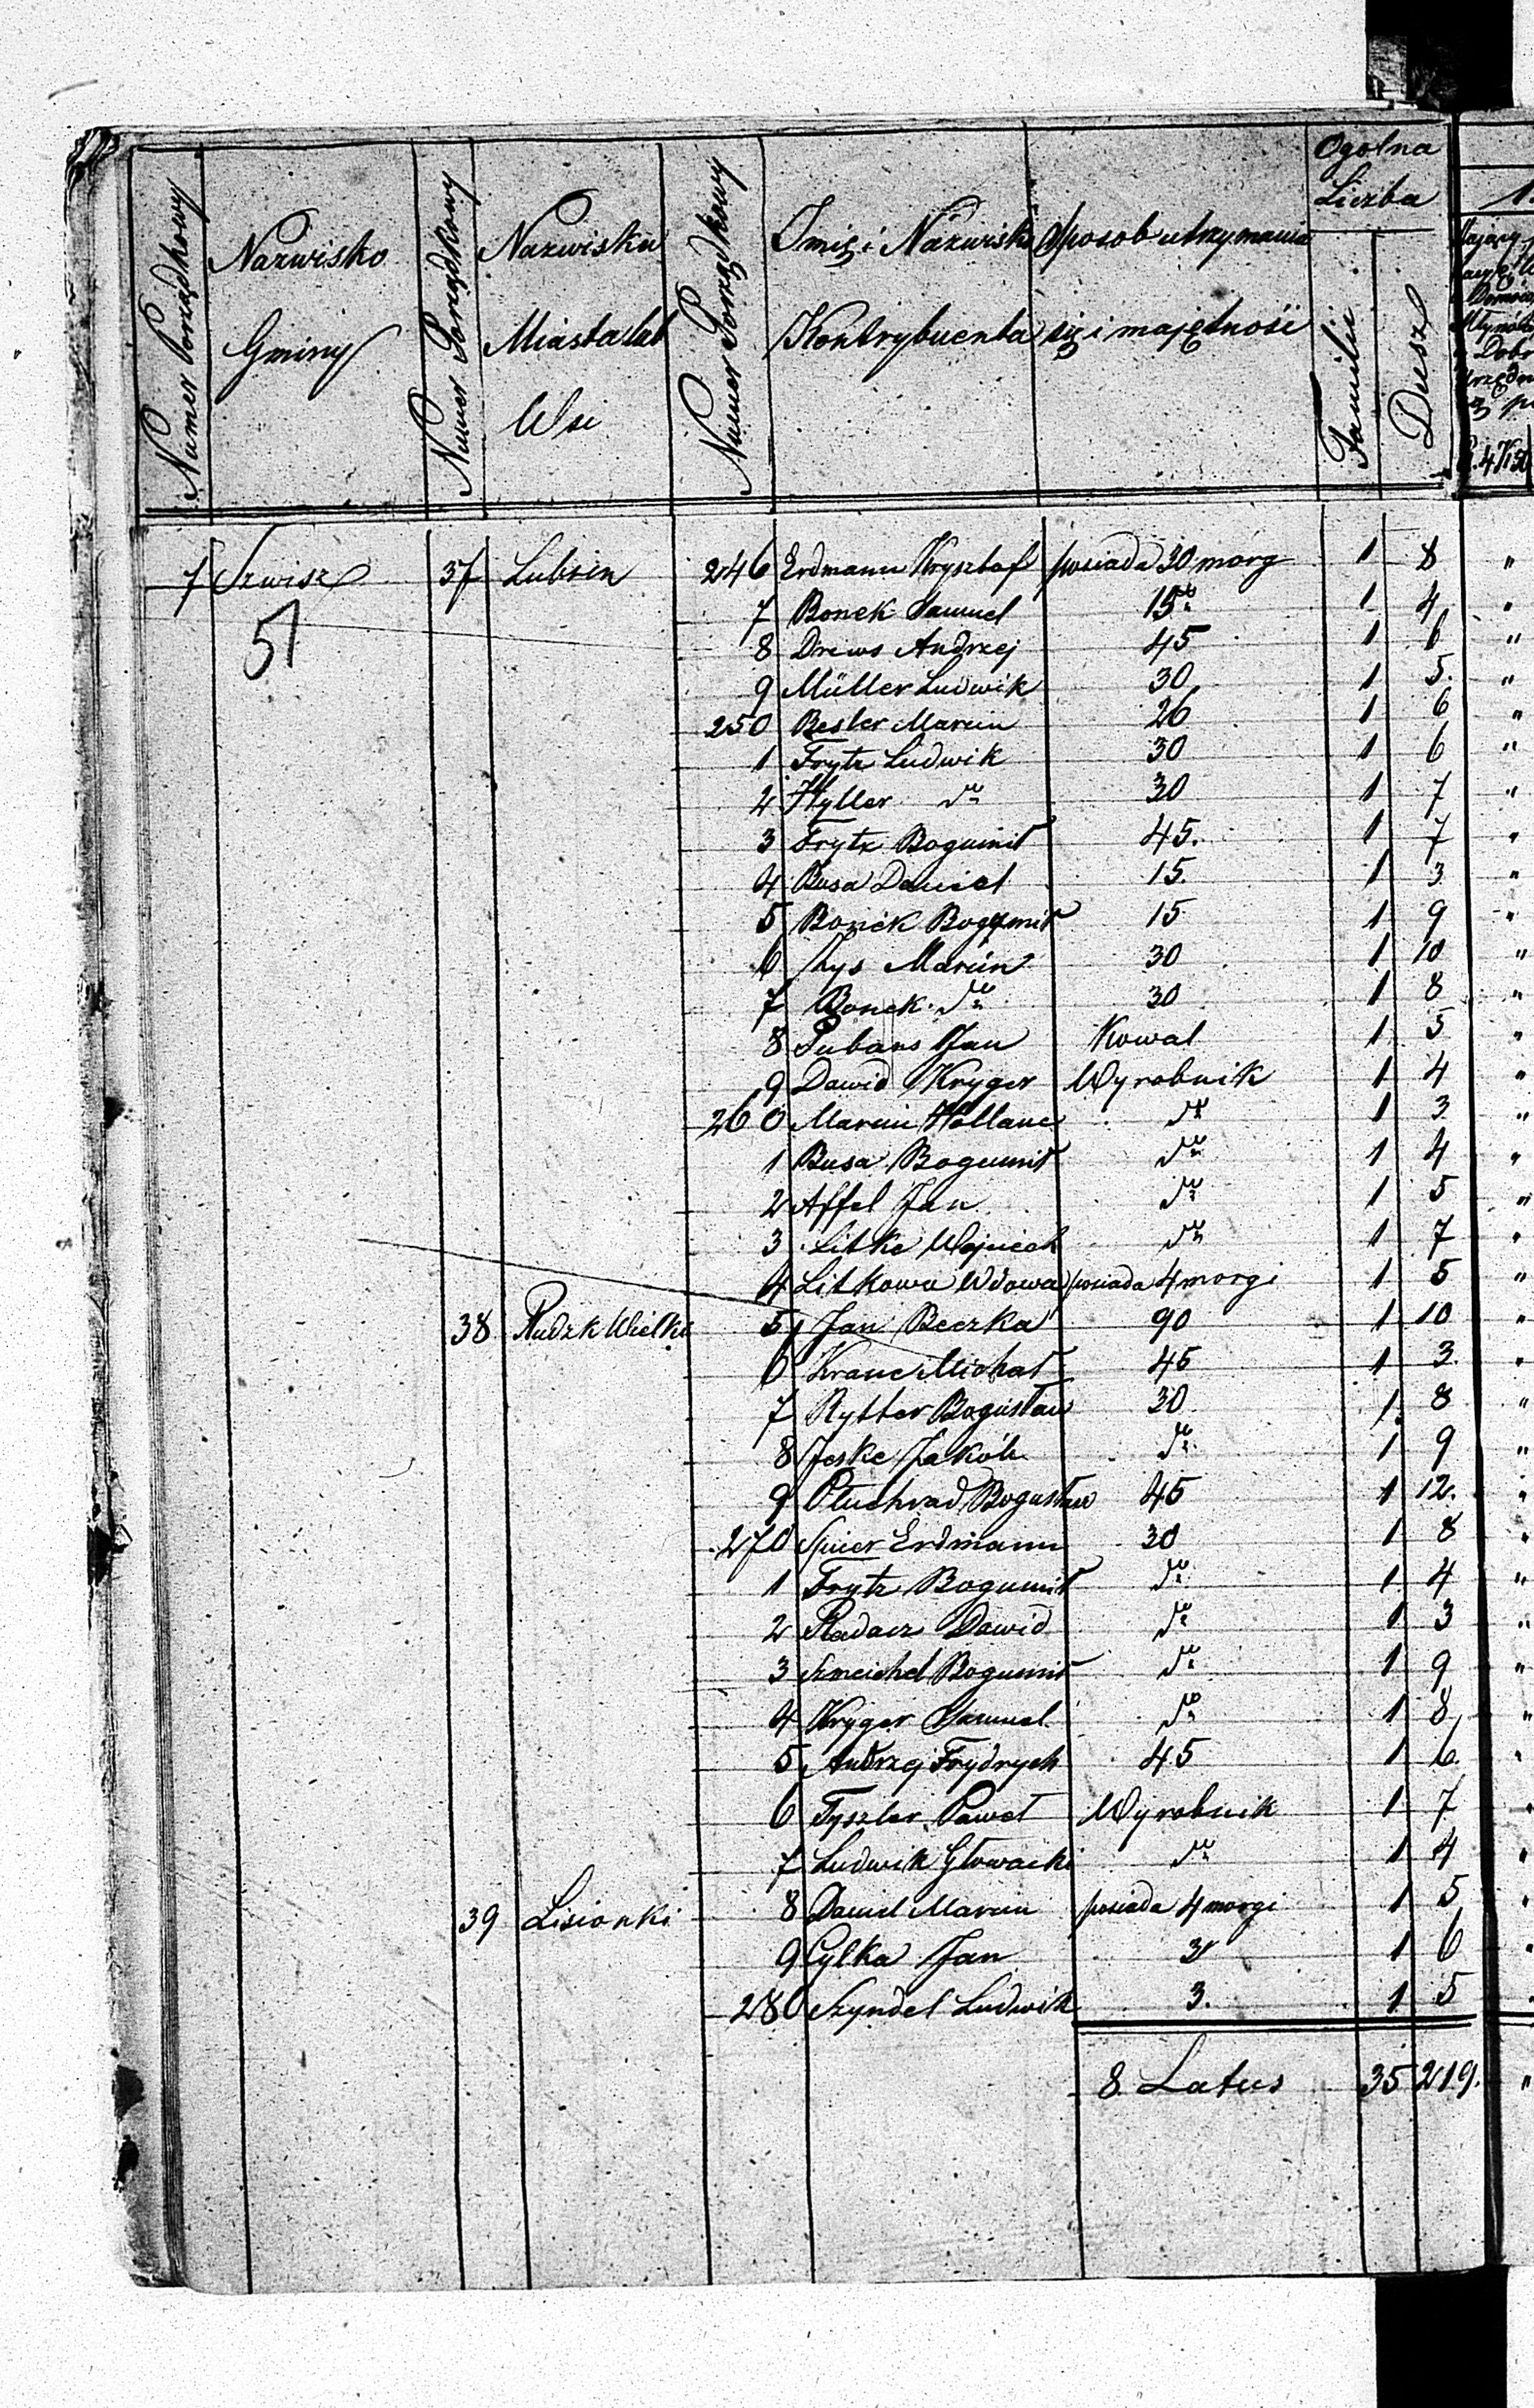 Numer Porządkowy
Nazwisko
Gminy
Numer Porządkowy
Nazwisku
Miasta lub
Wsi
Numer Porządkowy
Imię i Nazwisko
Kontrybuenta
Sposob utrzymania
się i majętnośi
Ogolna
Liczba
Familii
Dusz
7 Szwisz 37 Lubsin 246 Erdmann Krysztof posiada 30 morg 1 8 "
51
7 Bonek Samuel 15 1 4 "
8 Drews Andrzej 45 1 6 "
9 Müller Ludwik 30 1 5. "
250 Besler Marcin 26 1 6 "
1 Frytz Ludwik 30 1 6 "
2 Hyller do 30 1 7 "
3 Frytz Bogumił 45. 1 7 "
4 Busa Daniel 15. 1 3 "
5 Bonek Bogumił 15 1 9 "
6 Lys Marcin 30 1 10 "
7 Bonek do 30 1 8 "
8 Pubans Jan Kowal 1 5 "
9 Dawid Kryger Wyrobnik 1 4 "
260 Marcin Hollanc do 1 3 "
1 Busa Bogumił do 1 4 "
2 Affel Jan do 1 5 "
3 Litke Wojciech do 1 7 "
4 Litkowa Wdowa posiada 4 morgi 1 5 "
38 Rudzk Wielki 5 Jan Beczka 90 1 10 "
6 Kranc Michał 45 1 3. "
7 Rytter Bogusław 30 1. 8 "
8 Jeske Jakób do 1 9 "
9 Pluchrad Bogusław 45 1 12. "
270 Spicer Erdmann 30 1 8 "
1 Frytz Bogumił do 1 4 "
2 Radacz Dawid do 1 3 "
3 Szmeichel Bogumił do 1 9 "
4 Kryger Samuel do 1 8 "
5 Andrzej Frydrych 45 1 6. "
6 Tyszler Paweł Wyrobnik 1 7 "
7 Ludwik Głowacki do 1 4 "
39 Lisionki 8 Daniel Marcin posiada 4 morgi 1 5 "
9 Cylka Jan 3 1 6 "
280 Szyndel Ludwik 3. 1 5
8. Latus 35 219. "